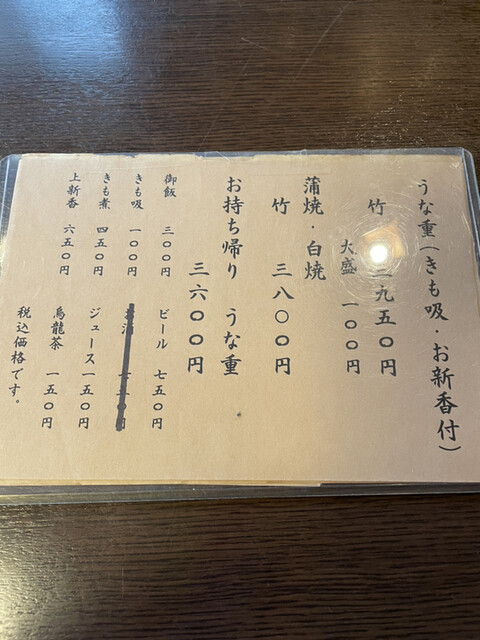 うな重(きも吸・お新香付)
竹 九五〇円
大盛 一〇〇円
蒲焼・白焼
竹 三八〇〇円
お持ち帰り うな重
三六〇〇円
御飯 三〇〇円
きも吸 一〇〇円
きも煮 四五〇円
上新香 六五〇円
ビール 七五〇円
ジュース 一五〇円
烏龍茶 一五〇円
税込価格です。